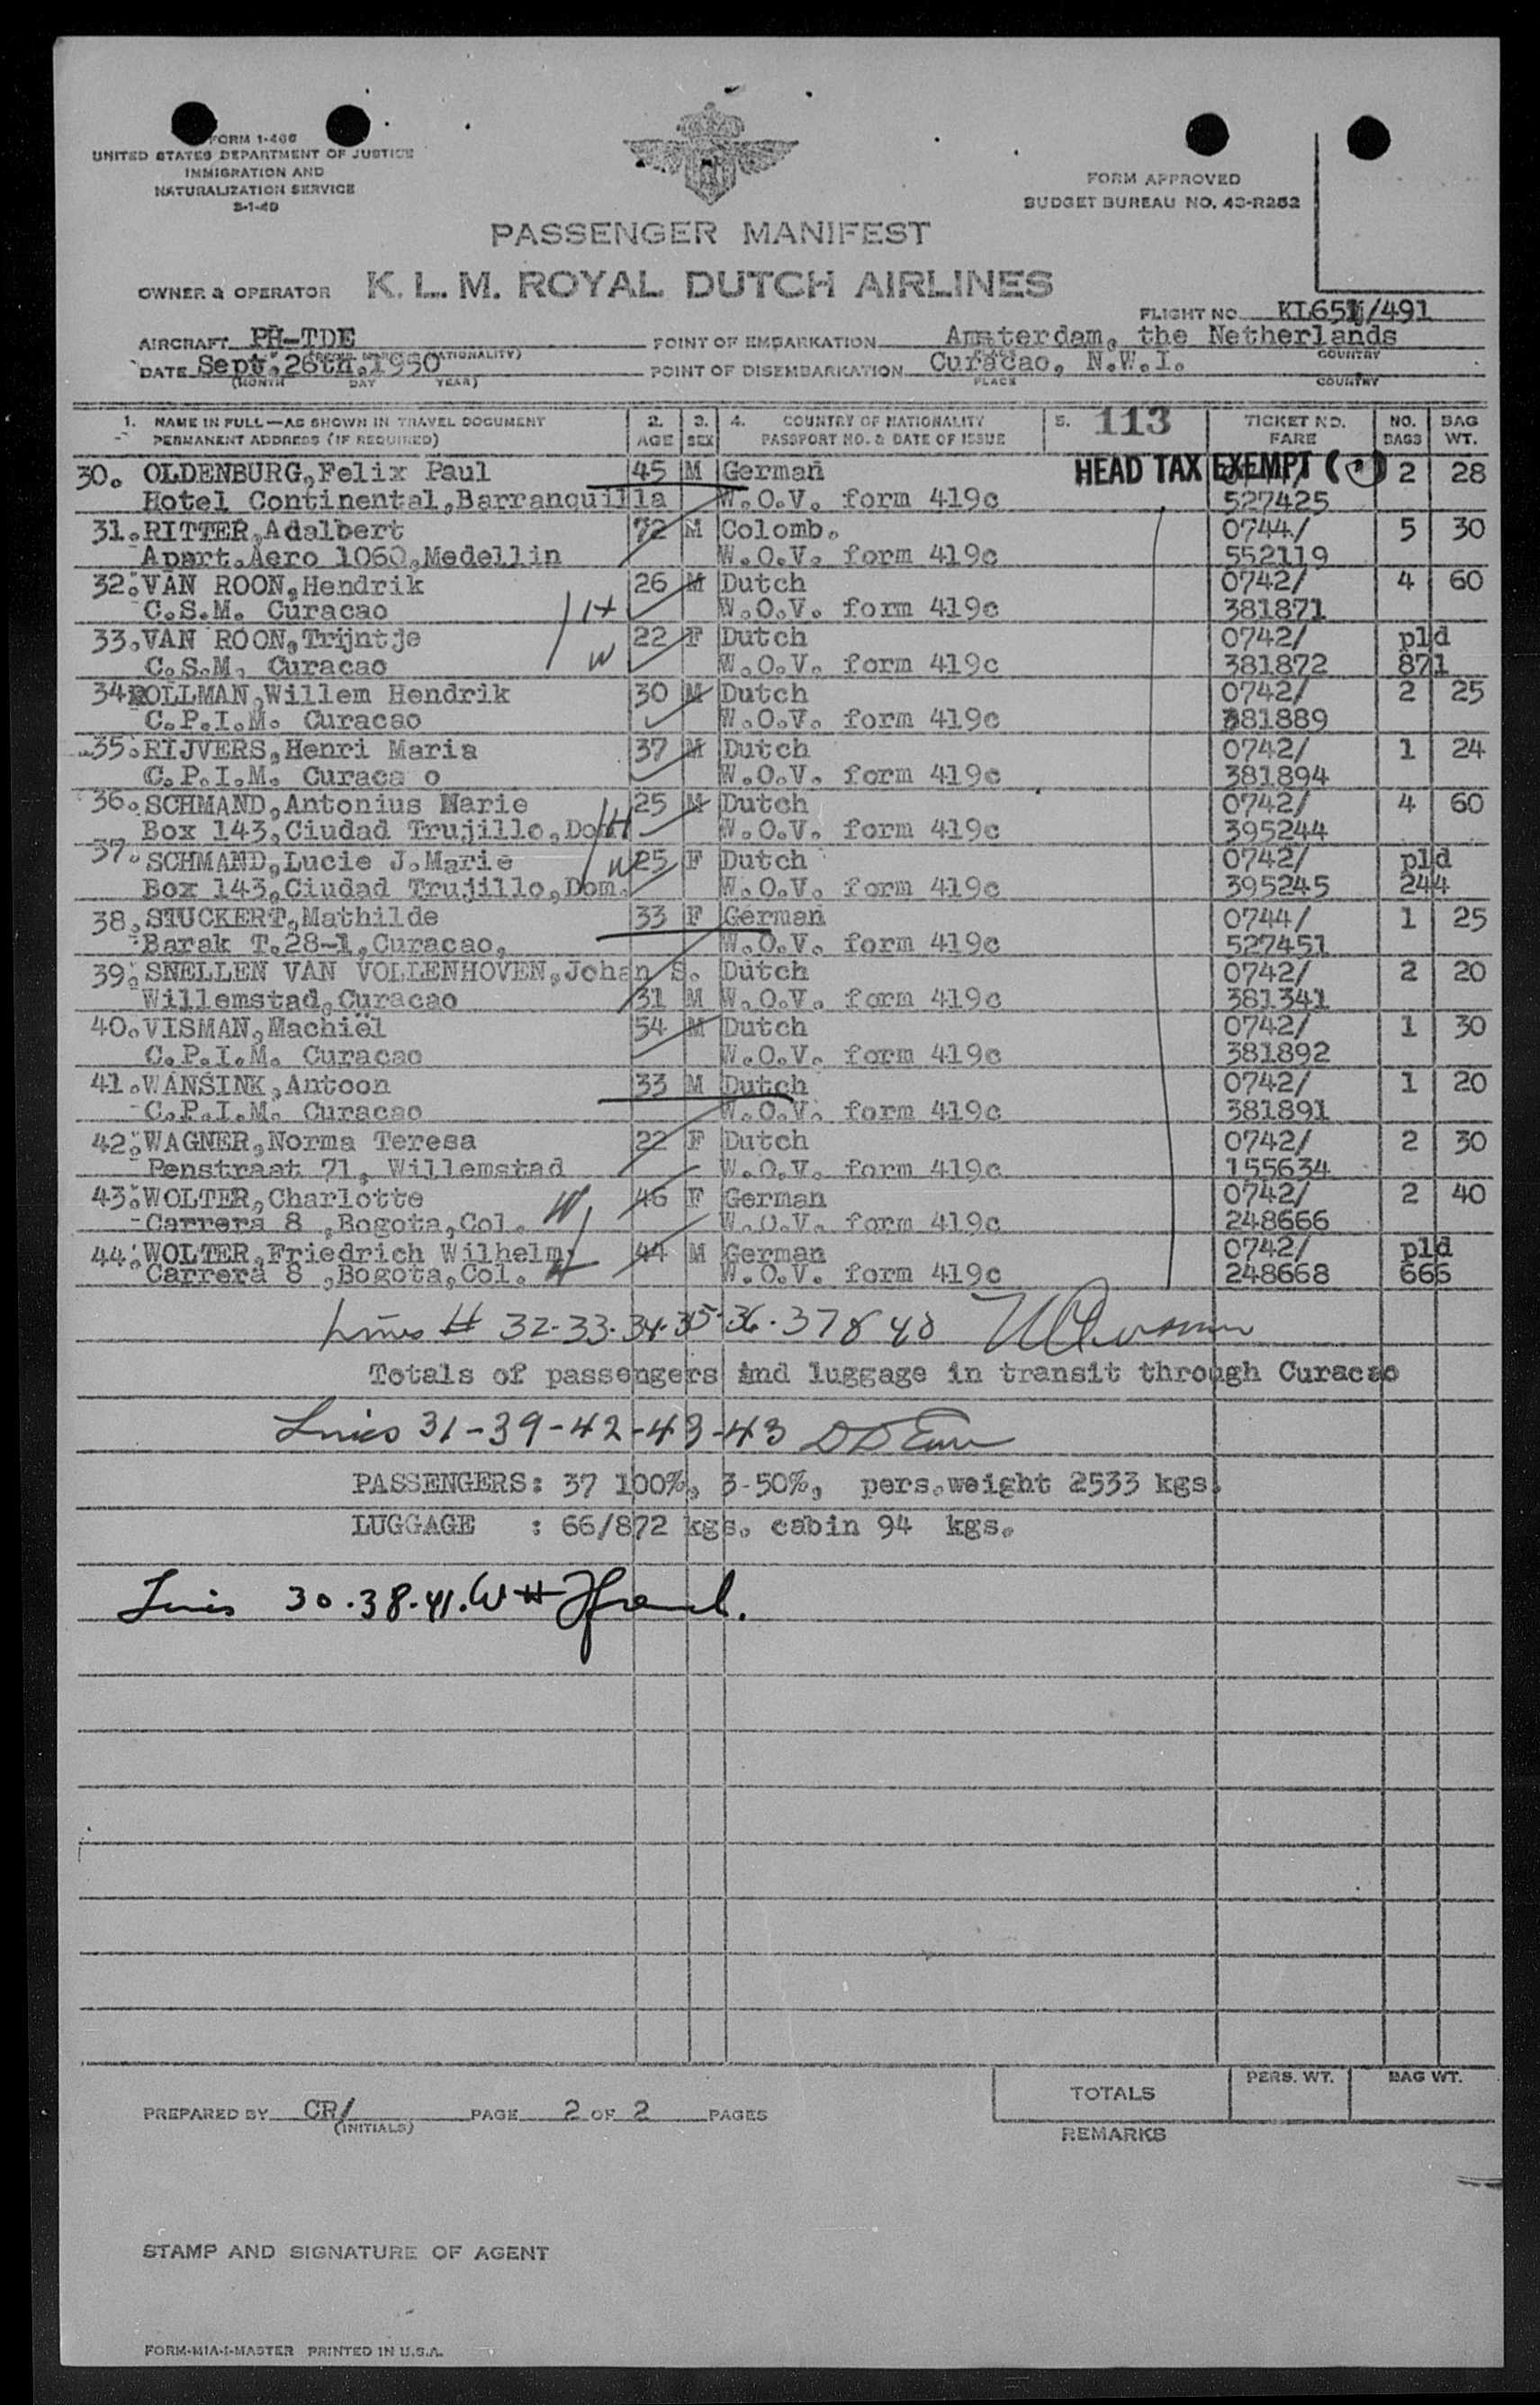 FORM I-466
UNITED STATES DEPARTMENT OF JUSTICE
IMMIGRATION AND
NATURALIZATION SERVICE
FORM APPROVED
BUDGET BUREAU NO. 43-R252
PASSENGER MANIFEST
OWNER & OPERATOR K. L. M. ROYAL DUTCH AIRLINES
FLIGHT NO. KL651/491
AIRCRAFT PH-TDE POINT OF EMBARKATION Amsterdam, the Netherlands
DATE Sept. 26th. 1950 POINT OF DISEMBARKATION Curacao, N.W.I.
(MONTH DAY YEAR) PLACE COUNTRY
1. NAME IN FULL—AS SHOWN IN TRAVEL DOCUMENT 2. 3. 4. COUNTRY OF NATIONALITY 5. 113 TICKET NO. NO. BAG
PERMANENT ADDRESS (IF REQUIRED) AGE SEX PASSPORT NO. & DATE OF ISSUE FARE BAGS WT.
30. OLDENBURG,Felix Paul 45 M German HEAD TAX EXEMPT 2 28
Hotel Continental,Barranquilla W.O.V. form 419c 527425
31.RITTER,Adalbert 72 M Colomb. 0744/ 5 30
Apart.Aero 1060,Medellin W.O.V. form 419c 552119
32.VAN ROON,Hendrik 26 M Dutch 0742/ 4 60
C.S.M. Curacao H W.O.V. form 419c 381871
33.VAN ROON,Trijntje 22 F Dutch 0742/ pld
C.S.M. Curacao W W.O.V. form 419c 381872 871
34 ROLLMAN,Willem Hendrik 30 M Dutch 0742/ 2 25
C.P.I.M. Curacao W.O.V. form 419c 381889
35.RIJVERS,Henri Maria 37 M Dutch 0742/ 1 24
C.P.I.M. Curaca o W.O.V. form 419c 381894
36.SCHMAND,Antonius Marie 25 M Dutch 0742/ 4 60
Box 143,Ciudad Trujillo,Dom. H W.O.V. form 419c 395244
37.SCHMAND,Lucie J.Marie W 25 F Dutch 0742/ pld
Box 143,Ciudad Trujillo,Dom. W.O.V. form 419c 395245 244
38.STUCKERT,Mathilde 33 F German 0744/ 1 25
Barak T.28-1,Curacao, W.O.V. form 419c 527451
39.SNELLEN VAN VOLLENHOVEN,Johan S. Dutch 0742/ 2 20
Willemstad,Curacao 31 M W.O.V. form 419c 381341
40.VISMAN,Machiël 54 M Dutch 0742/ 1 30
C.P.I.M. Curacao W.O.V. form 419c 381892
41.WANSINK,Antoon 33 M Dutch 0742/ 1 20
C.P.I.M. Curacao W.O.V. form 419c 381891
42.WAGNER,Norma Teresa 22 F Dutch 0742/ 2 30
Penstraat 71, Willemstad W.O.V. form 419c 155634
43.WOLTER,Charlotte W 46 F German 0742/ 2 40
Carrera 8 ,Bogota,Col. W.O.V. form 419c 248666
44.WOLTER,Friedrich Wilhelm 44 M German 0742/ pld
Carrera 8 ,Bogota,Col. H W.O.V. form 419c 248668 666
Lines # 32-33-34-35-36-37 & 40
Totals of passengers and luggage in transit through Curacao
Lines 31-39-42-43-43
PASSENGERS: 37 100%, 3-50%, pers.weight 2533 kgs.
LUGGAGE : 66/872 kgs. cabin 94 kgs.
Lines 30.38.41.
TOTALS PERS. WT. BAG WT.
PREPARED BY CR/ PAGE 2 OF 2 PAGES
(INITIALS)
REMARKS
STAMP AND SIGNATURE OF AGENT
FORM-MIA-I-MASTER PRINTED IN U.S.A.